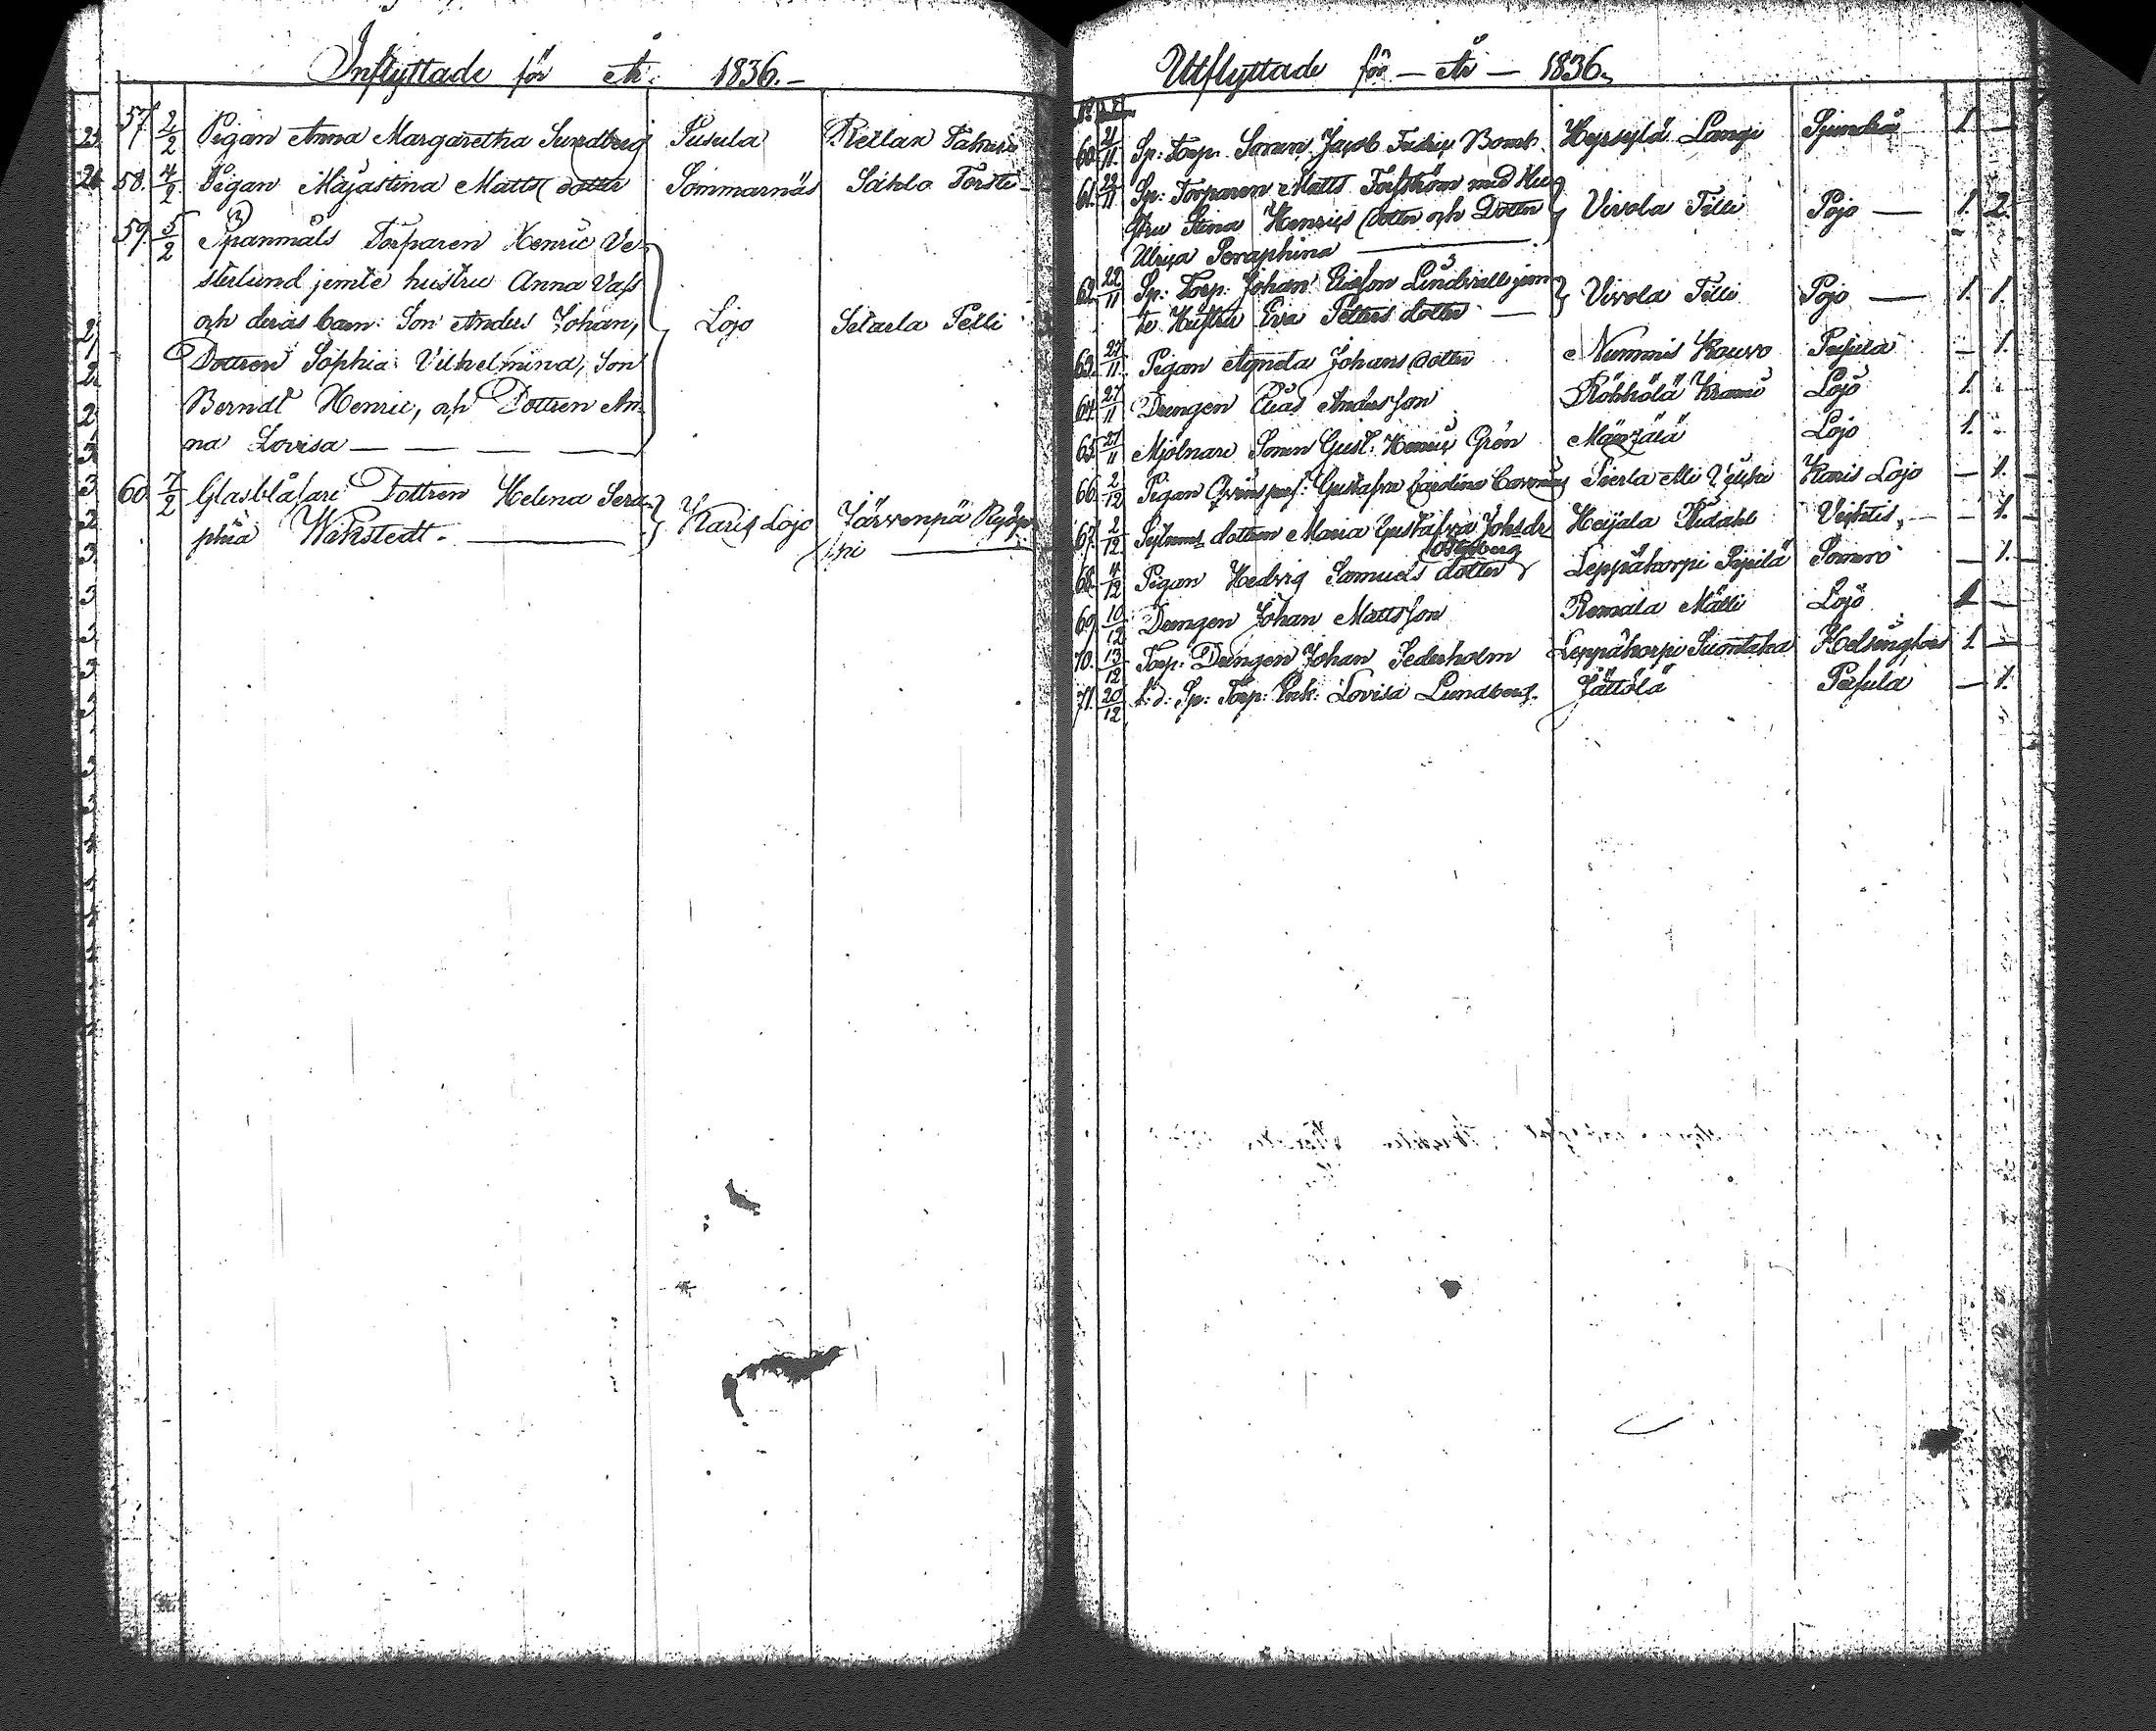 Inflyttade för År 1836.
57. 2/2 Pigan Anna Margaretha Sundberg Pusula Retlan
58. 4/2 Pigan Majastina Matts dotter Sommarnäs Sahlo
59. 5/2 Spanmåls Torparen Henric Ve-
sterlund jemte hustru Anna
och deras barn: Son Anders Johan, Lojo Setaela Pelli
Dottren Sophia Vilhelmina, Son
Berndt Henric, och Dottren An-
na Lovisa
60. 7/2 Glasblåsare Dottren Helena Sera-
phia Wakstedt. Karis Lojo Järvenpä
Utflyttade för År 1836.
60. 21/11 Sp: Torp. Sonen Jacob Fredric Hyrsylä Lange Sjundeå 1. —
61. 22/11 Sp: Torparen Matts Forsström med Hu-
stru Stina Henrics dotter och Dotter Vivola Tilli Pojo — 1. 2.
Ulrica Seraphina
62. 22/11 Sp: Torp. Johan Lindvall jem-
te Hustru Eva Petters dotter — Vivola Tilli Pojo — 1. 1.
63. 27/11 Pigan Agneta Johans dotter Nummis Kouvo Pusula — 1.
64. 27/11 Drengen Elias Andersson Röhkölä Lojo 1. —
65. 27/11 Mjölnare Sonen Gust. Henric Grön Lojo 1. —
66. 2/12 Pigan Gustafva Carolina Karis Lojo — 1.
67. 2/12 dottren Maria Gustafva Johs dr Heijala Vichtis, — 1.
68. 4/12 Pigan Hedvig Samuels dotter Leppäkorpi Somero — 1.
69. 10/12 Drengen Johan Mattsson Remala Mätti Lojo 1 —
70. 13/12 Torp: Drengen Johan Sederholm Leppäkorpi Suontaka Helsingfors 1 —
71. 20/12 f: d: Sp: Torp: Enk: Lovisa Lundberg Jättölä Pusula — 1.